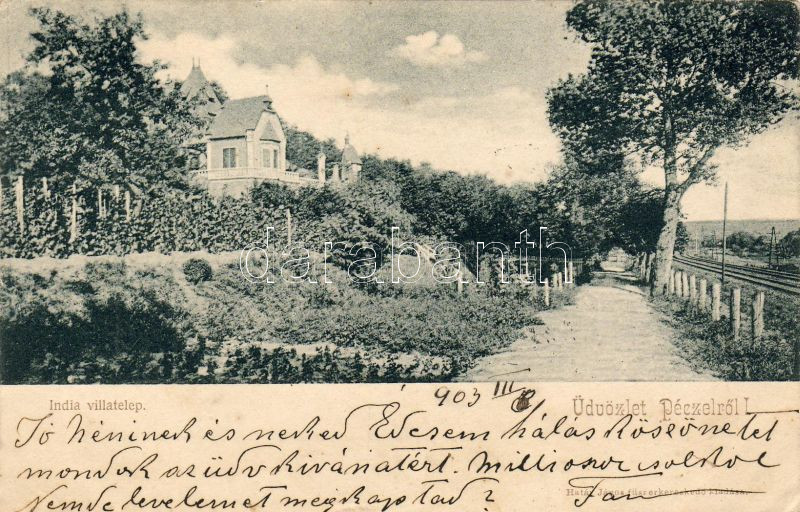 darabanth
India villatelep.
903 III 8
Üdvözlet Péczelről!
Jó néninek és neked Édesem hálás köszönetet
mondok az üdv kivánatért. Milliószor csókol
Nem de levelemet megkaptad? Fan
Hatás János fűszerkereskedő kiadása.